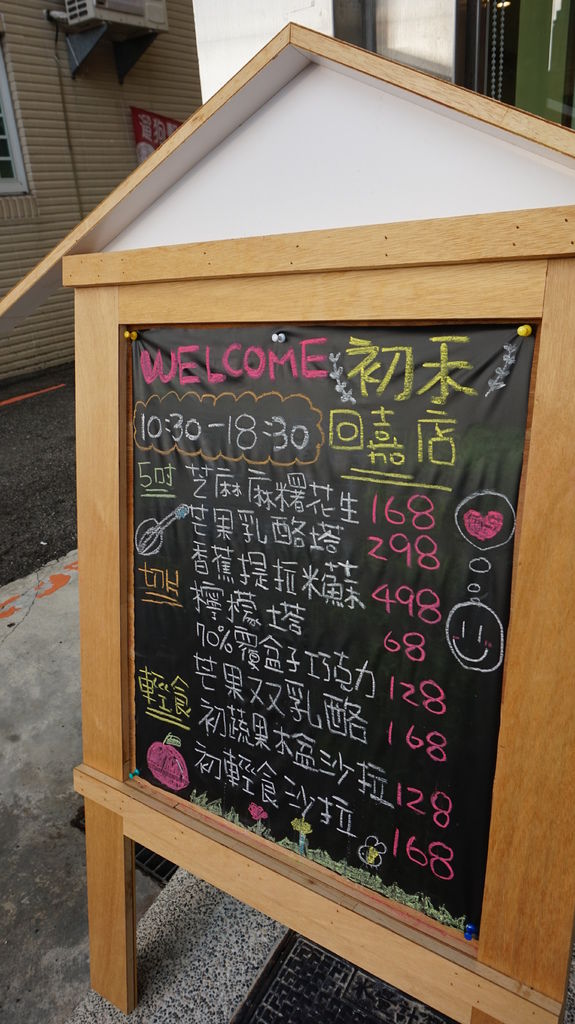 WELCOME 初禾
10:30-18:30 回嘉店
5吋 芝麻麻糬花生 168
芒果乳酪塔 298
香蕉提拉米蘇 498
切片 檸檬塔 68
70%覆盆子巧克力 128
芒果双乳酪 168
輕食 初蔬果木盒沙拉 128
初輕食沙拉 168